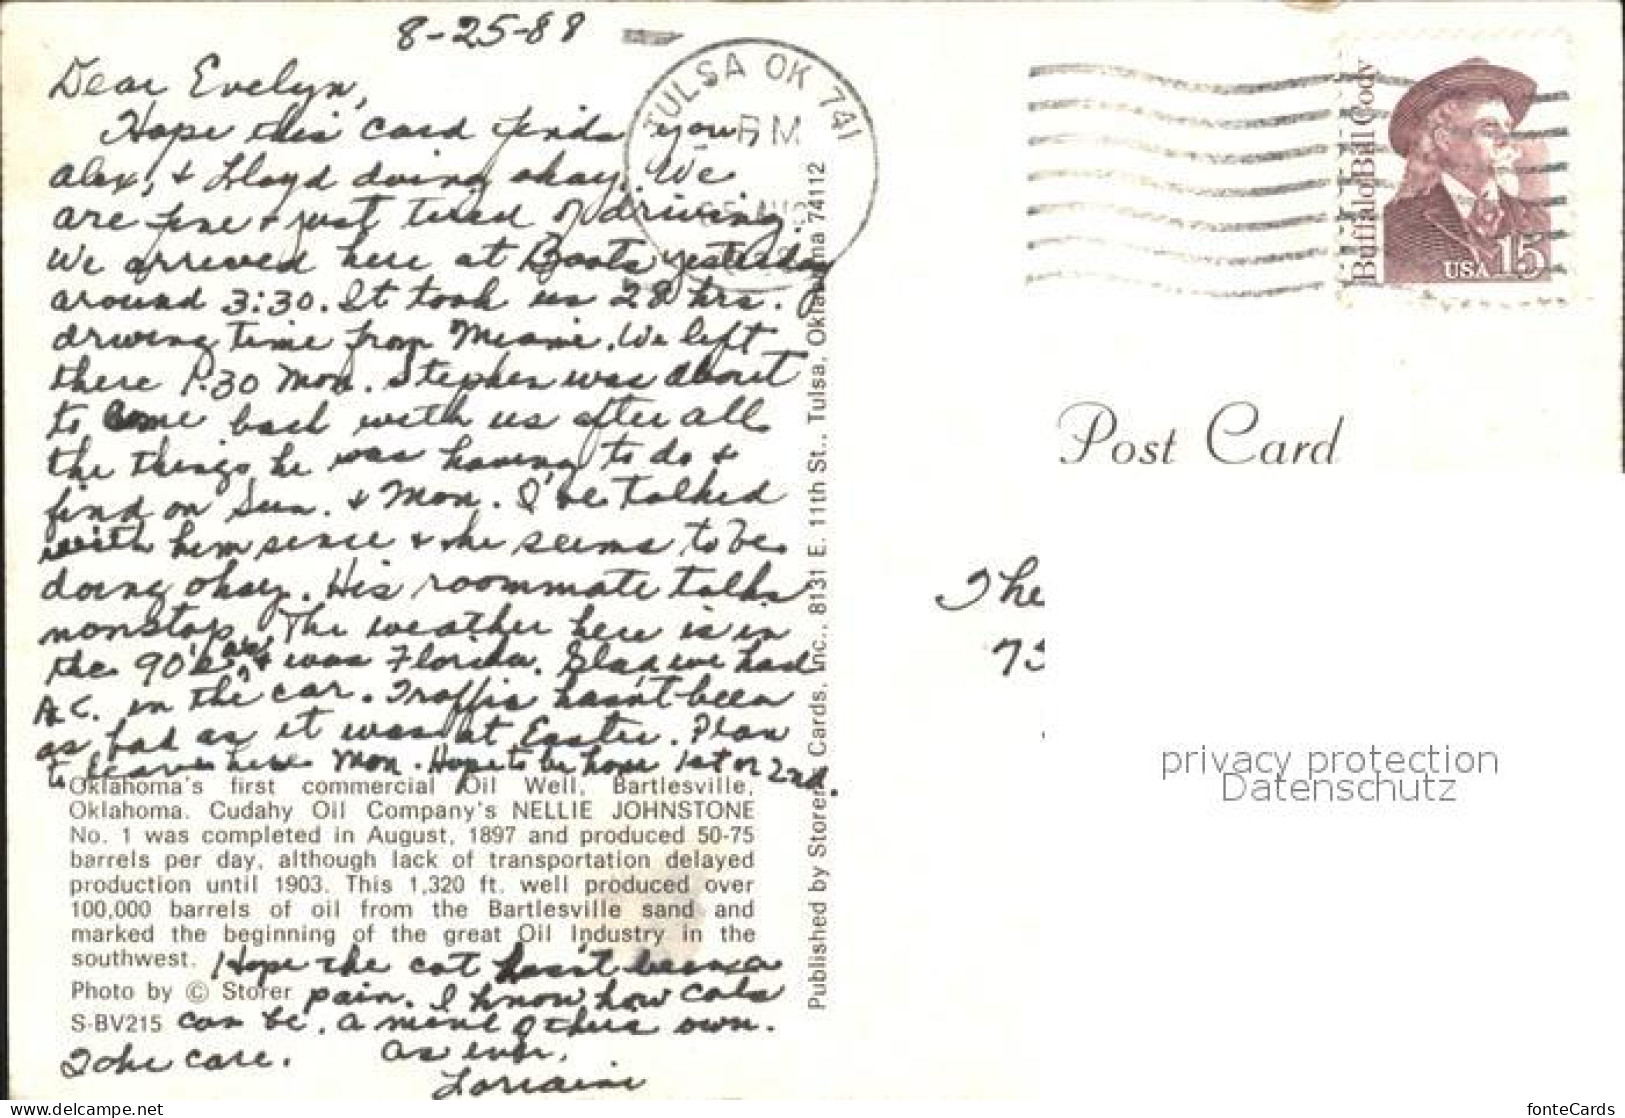 8-25-88
Dear Evelyn,
Hope this card finds you,
Alex, & Lloyd doing okay. We
are fine & just tired of driving.
We arrived here at Boots yesterday
around 3:30. It took us 28 hrs.
driving time from Miami. We left
there P.30 Mon. Stephen was about
to come back with us after all
the things he was having to do &
find on Sun. & Mon. I've talked
with him since & he seems to be
doing okay. His roommate talks
nonstop. The weather here is in
the 90's & was Florida. Glad we had
A.C. in the car. Traffic hasn't been
as bad as it was at Easter. Plan
to leave here Mon. Hope to be home 1st or 2nd.
Oklahoma's first commercial Oil Well, Bartlesville,
Oklahoma. Cudahy Oil Company's NELLIE JOHNSTONE
No. 1 was completed in August, 1897 and produced 50-75
barrels per day, although lack of transportation delayed
production until 1903. This 1,320 ft. well produced over
100,000 barrels of oil from the Bartlesville sand and
marked the beginning of the great Oil Industry in the
southwest.
Hope the cat hasn't been a
pain. I know how cats
can be, a mind of their own.
Take care. As ever,
Lorraine
Photo by © Storer
S-BV215
Published by Storer Cards, Inc., 8131 E. 11th St., Tulsa, Oklahoma 74112
TULSA OK 741
PM
Buffalo Bill Cody
USA 15
Post Card
The
73
privacy protection
Datenschutz
www.delcampe.net
fonteCards